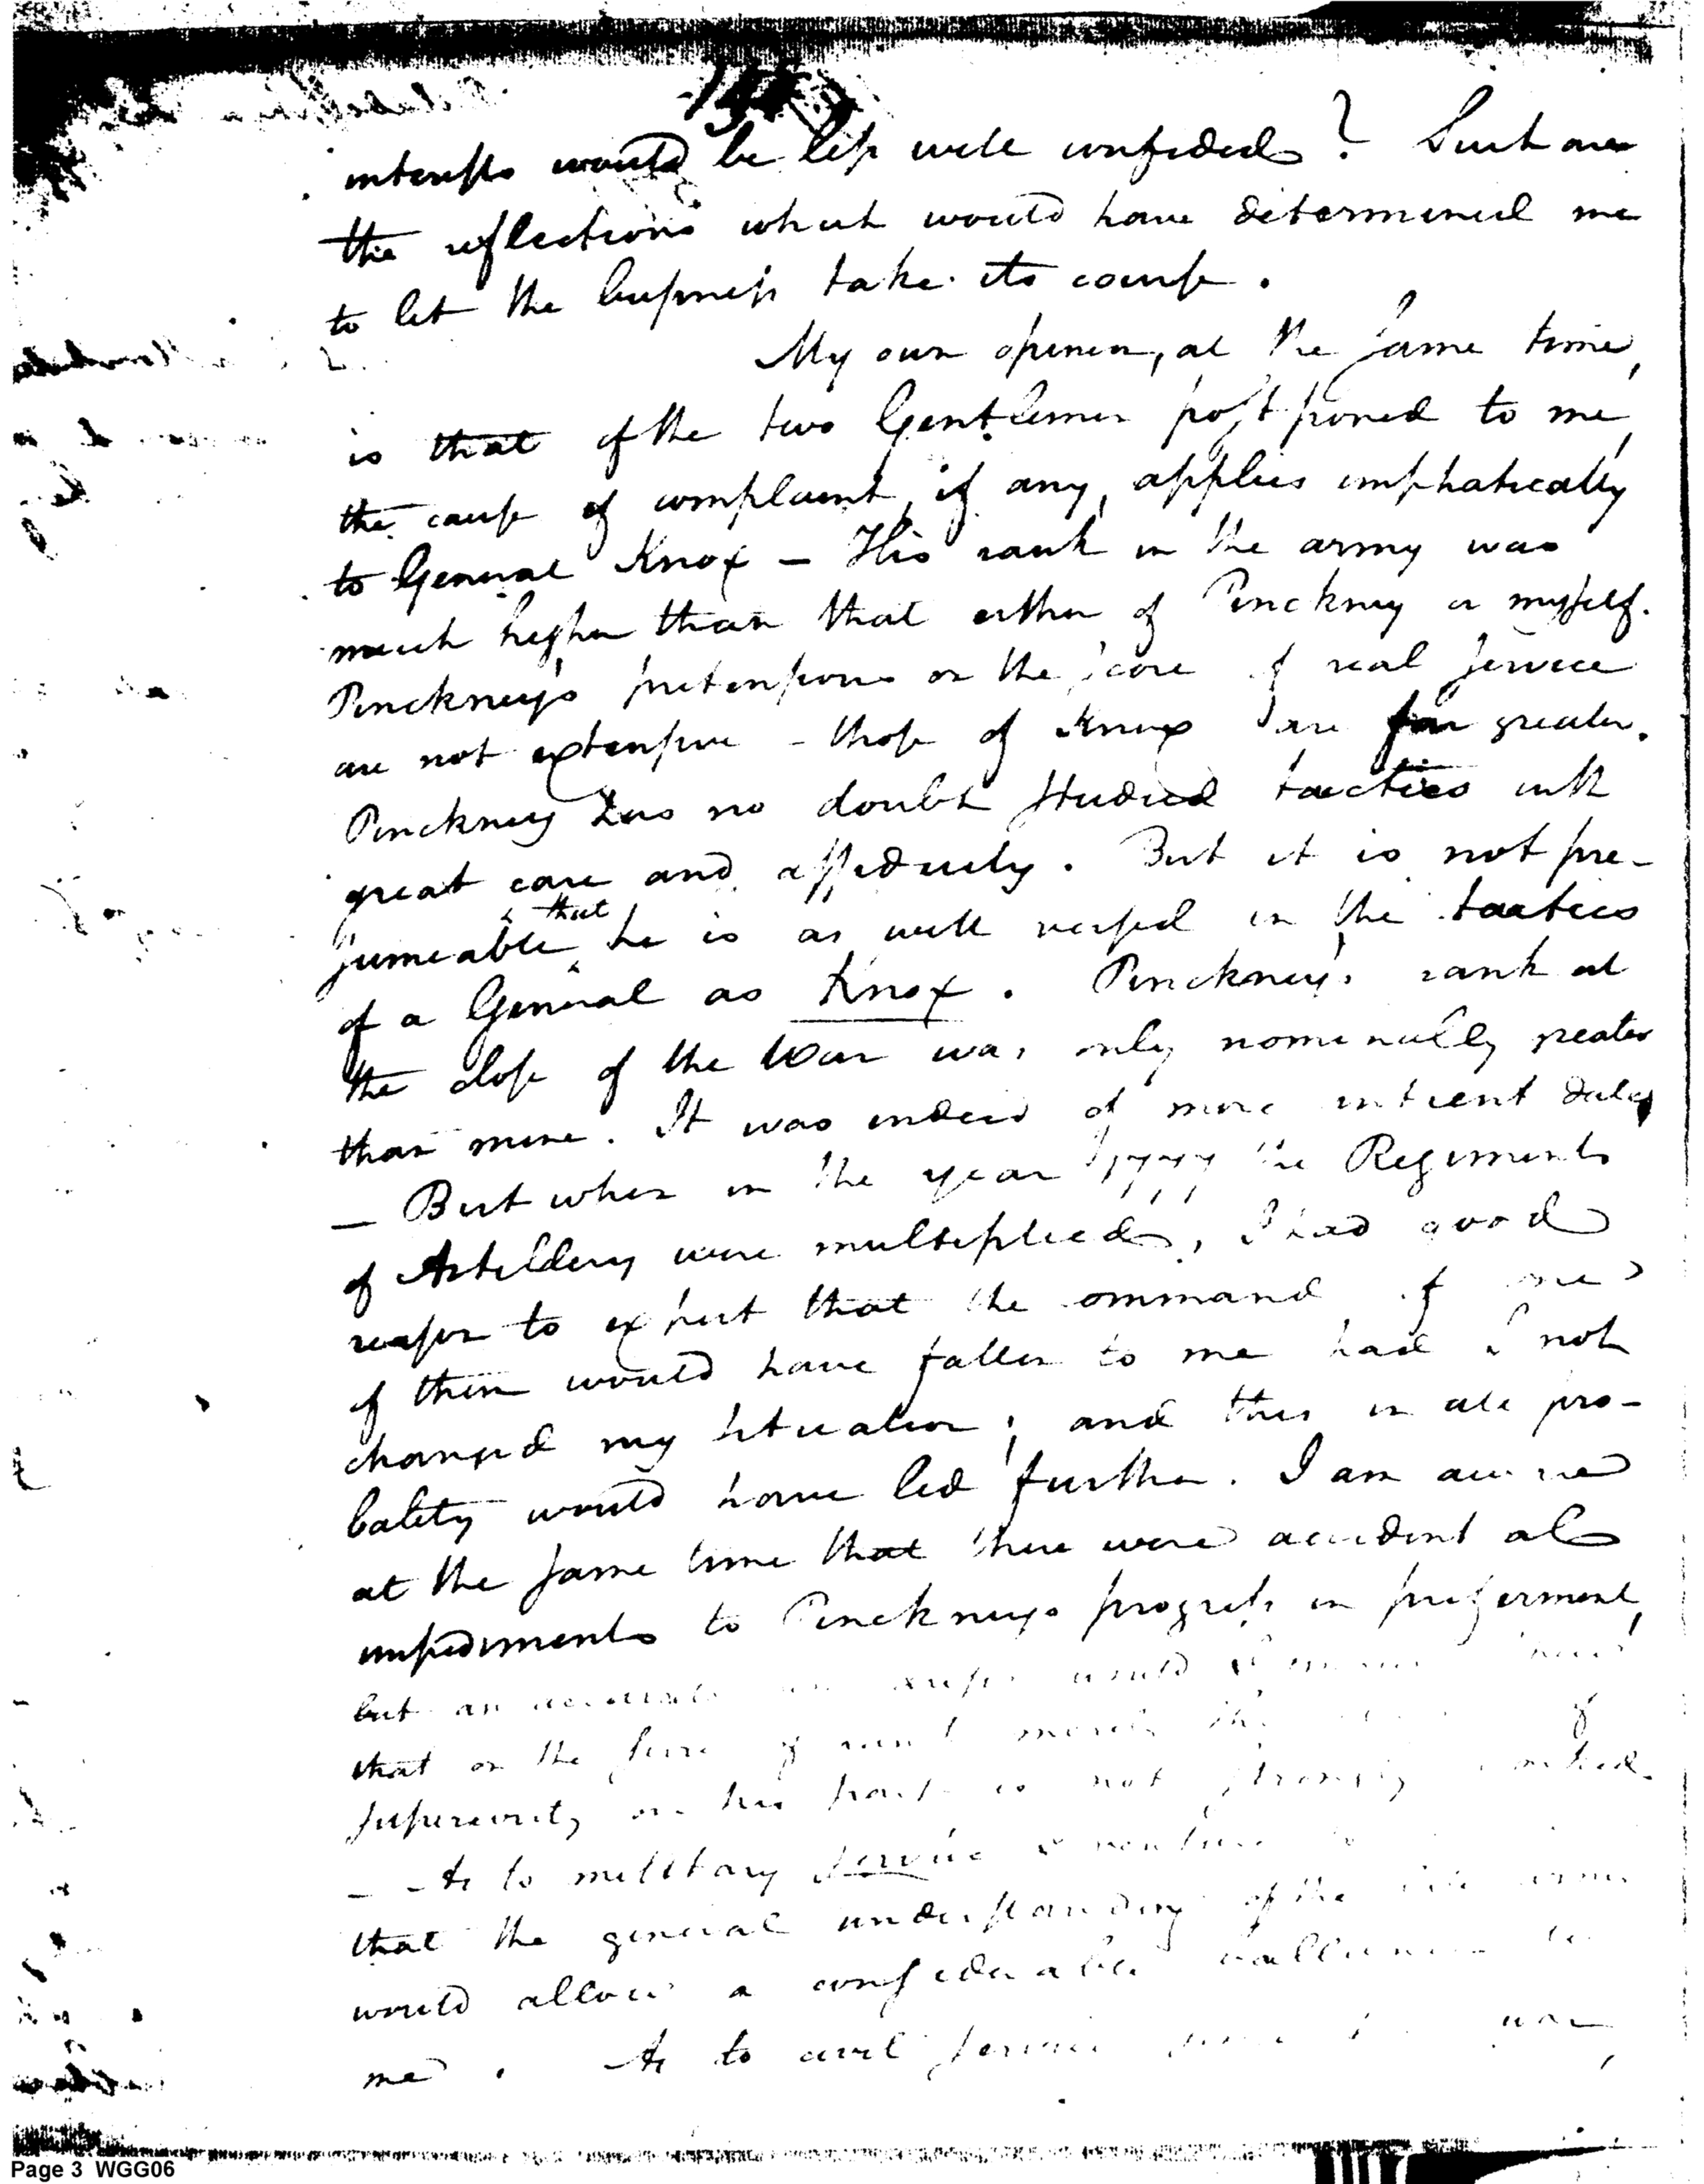 interests would be less well confided? Such are
the reflections which would have determined me
to let the business take its course.
My own opinion, at the same time,
is that of the two Gentlemen postponed to me,
the cause of complaint, if any, applies emphatically
to General Knox — His rank in the army was
much higher than that either of Pinckney or myself.
Pinckney's pretensions on the score of real service
are not extensive — those of Knox are far greater.
Pinckney has no doubt studied tactics with
great care and assiduity. But it is not pre-
sumeable that he is as well versed in the tactics
of a General as Knox. Pinckney's rank at
the close of the War was only nominally greater
than mine. It was indeed of more antient date
— But when in the year 1777 the Regiments
of Artillery were multiplied, I had good
reason to expect that the command of one
of them would have fallen to me had I not
changed my situation; and this in all pro-
bality would have led further. I am aware
at the same time that there were accidental
impediments to Pinckney's progress in preferment,
but an accurate would
that on the score of rank merely the of
superiority on his part is not strongly marked.
— As to military service I venture to
that the general understanding of the late army
would allow a considerable ballance to
me. As to civil service since the war,
Page 3 WGG06